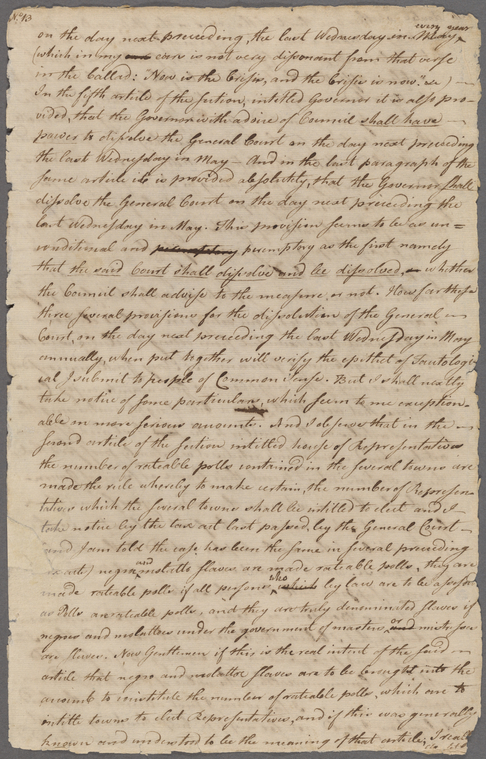 No. 13
every year
on the day next preceeding, the last Wednesday in May
(which in my ear is not very dissonant from that verse
in the Ballad: Now is the Crisis, and the Crisis is now. &c) —
In the fifth article of the section, intitled Governor it is also pro-
vided, that the Governor with advice of Council shall have —
power to dissolve the General Court on the day next preceeding
the last Wednesday in May — And in the last paragraph of the
same article it is provided absolutely, that the Governor shall
dissolve the General Court on the day next preceeding the
last Wednesday in May. This provision seems to be as un=
conditional and peremptory peremptory as the first namely
that the said Court shall dissolve and be dissolved, whether
the Council shall advise to the measure, or not. How far these
three several provisions for the dissolution of the General
Court, on the day next preceeding the last Wednesday in May
annually, when put together will verify the epithet of Tautologi-
cal I submit to people of Common Sense. But I shall nextly
take notice of some particulars, which seem to me exception-
able on more serious accounts. And I observe that in the —
second article of the section intitled house of Representatives
the number of rateable polls contained in the several towns are
made the rule whereby to make certain, the number of Represen-
tatives which the several towns shall be intitled to elect and I
take notice by the tax act last passed, by the General Court —
(and I am told the case has been the same in several preceeding
tax acts) negro and molatto slaves are made rateable polls, they are
made rateable polls if all persons, who which by law are to be assessed
as Polls are rateable polls, and they are truly denominated slaves if
negroes and molattoes under the government of masters, or and mistresses
are slaves. Now Gentlemen if this is the real intent of the said —
article that negro and molattoe slaves are to be brought into the
account to constitute the number of rateable polls, which are to
intitle towns to elect Representatives, and if this was generally
known and understood to be the meaning of that article, I really